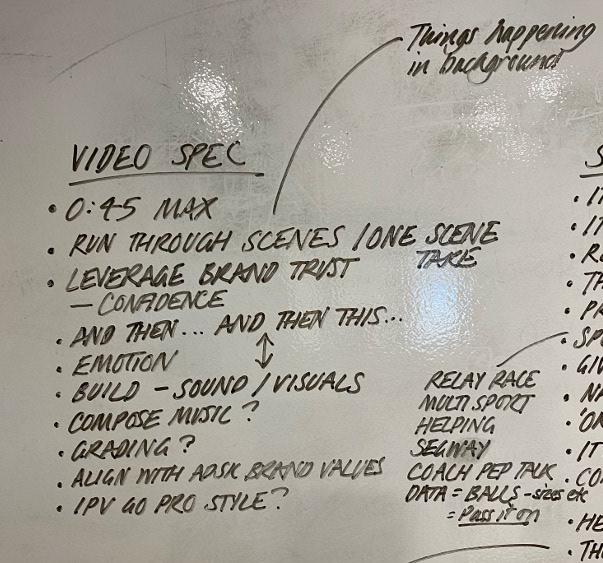 Things happening
in background!
VIDEO SPEC
• 0:45 MAX
• RUN THROUGH SCENES / ONE SCENE
TAKE
• LEVERAGE BRAND TRUST
— CONFIDENCE
• AND THEN... AND THEN THIS...
• EMOTION
• BUILD – SOUND / VISUALS
• COMPOSE MUSIC?
• GRADING?
• ALIGN WITH ADSK BRAND VALUES
• IPV GO PRO STYLE?
RELAY RACE
MULTI SPORT
HELPING
SEGWAY
COACH PEP TALK
DATA = BALLS – sizes etc
= Pass it on